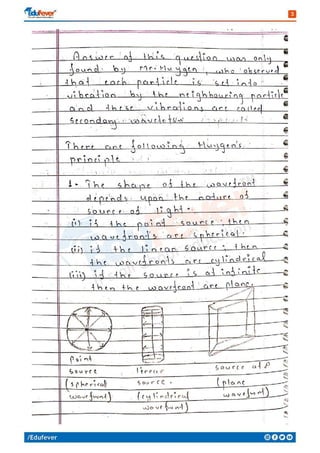 Edufever
3
Answer of this question was only
found by Mr. Huygen, who observed
that each particle is set into
vibration by the neighbouring particle
and these vibrations are called
secondary wavelets
There are following Huygen's
principle
1- The shape of the wavefront
depends upon the nature of
source of light.
(i) if the point source, then
wavefronts are spherical.
(ii) if the linear source, then
the wavefronts are cylindrical
(iii) if the source is at infinite
then the wavefront are plane.
Point
source
(spherical
wavefront)
linear
source.
(cylindrical
wavefront)
source at
(plane
wavefront)
/Edufever